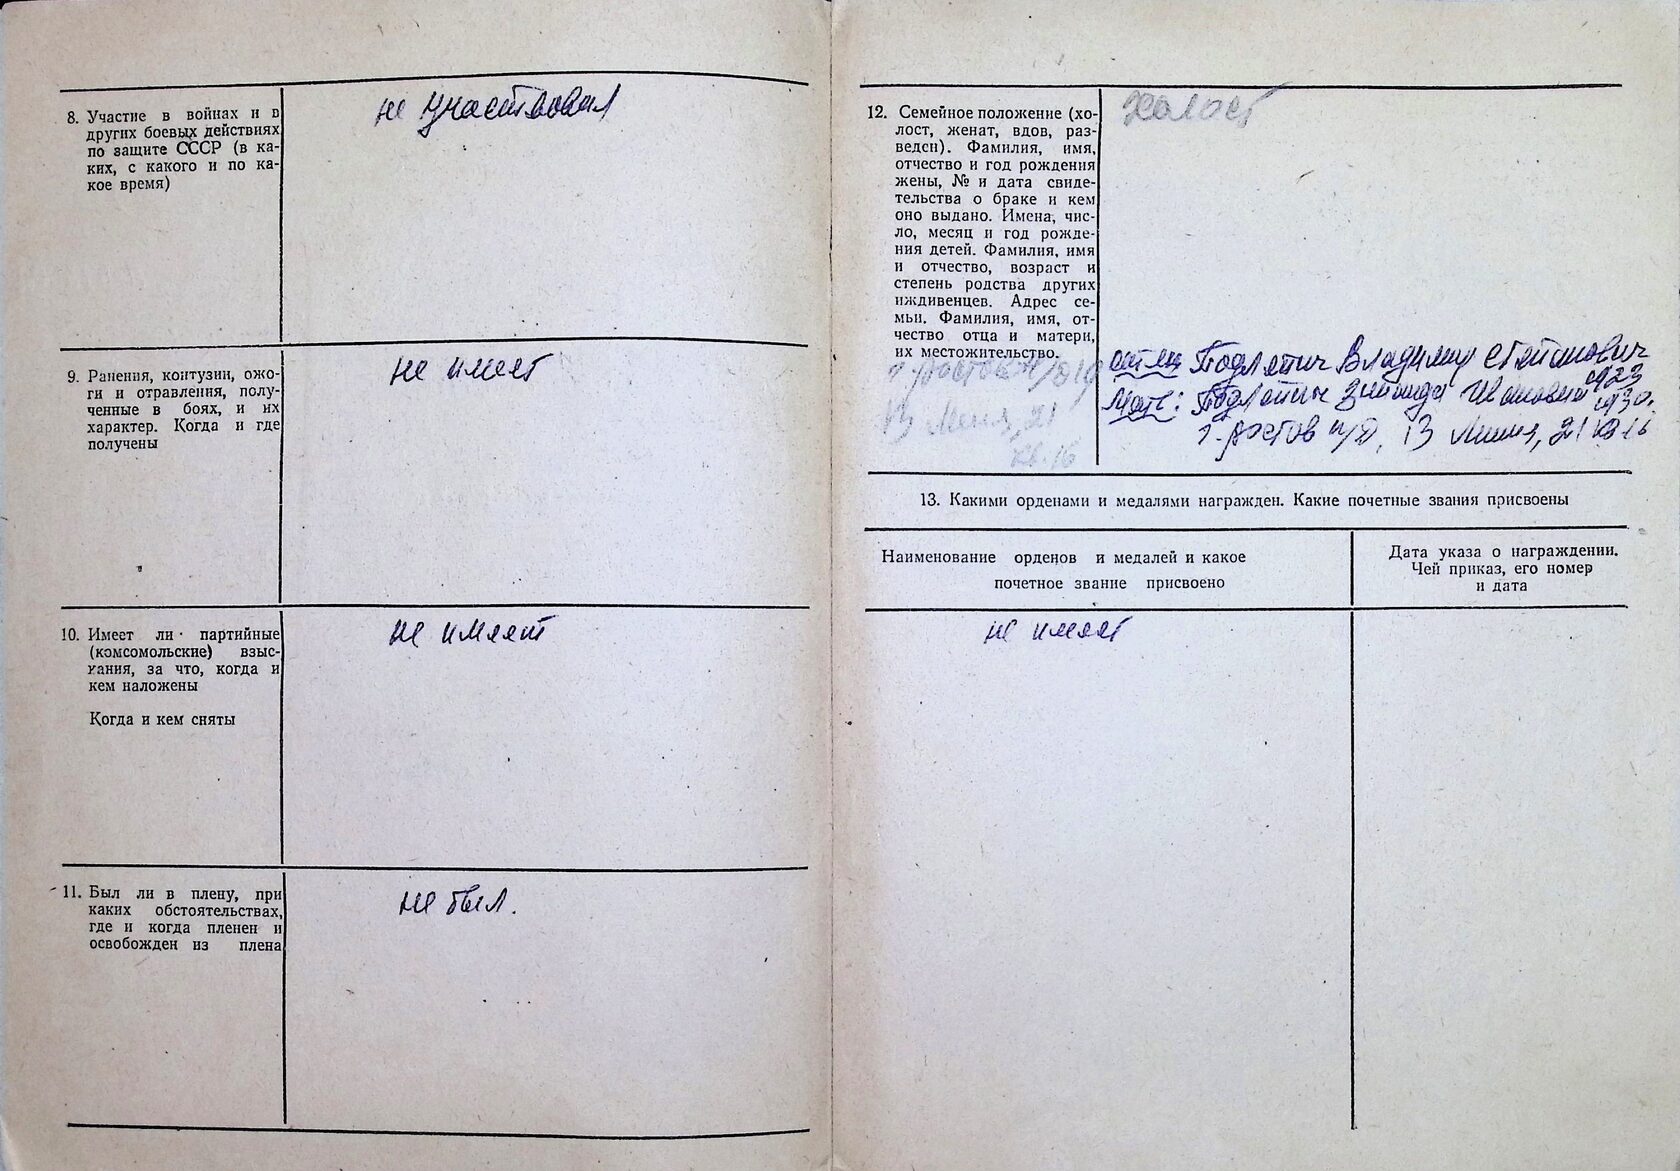 8. Участие в войнах и в
других боевых действиях
по защите СССР (в ка-
ких, с какого и по ка-
кое время)
не участвовал
9. Ранения, контузии, ожо-
ги и отравления, полу-
ченные в боях, и их
характер. Когда и где
получены
не имеет
10. Имеет ли партийные
(комсомольские) взыс-
кания, за что, когда и
кем наложены
Когда и кем сняты
не имеет
11. Был ли в плену, при
каких обстоятельствах,
где и когда пленен и
освобожден из плена
не был.
12. Семейное положение (хо-
лост, женат, вдов, раз-
веден). Фамилия, имя,
отчество и год рождения
жены, № и дата свиде-
тельства о браке и кем
оно выдано. Имена, чис-
ло, месяц и год рожде-
ния детей. Фамилия, имя
и отчество, возраст и
степень родства других
иждивенцев. Адрес се-
мьи. Фамилия, имя, от-
чество отца и матери,
их местожительство.
г. Ростов н/Д
13 Линия, 21
кв. 16
холост
отец Владимир Степанович
1923
Мать: Зинаида Ивановна 1930.
г. Ростов н/Д, 13 Линия, 21 кв 16
13. Какими орденами и медалями награжден. Какие почетные звания присвоены
Наименование орденов и медалей и какое
почетное звание присвоено
Дата указа о награждении.
Чей приказ, его номер
и дата
не имеет